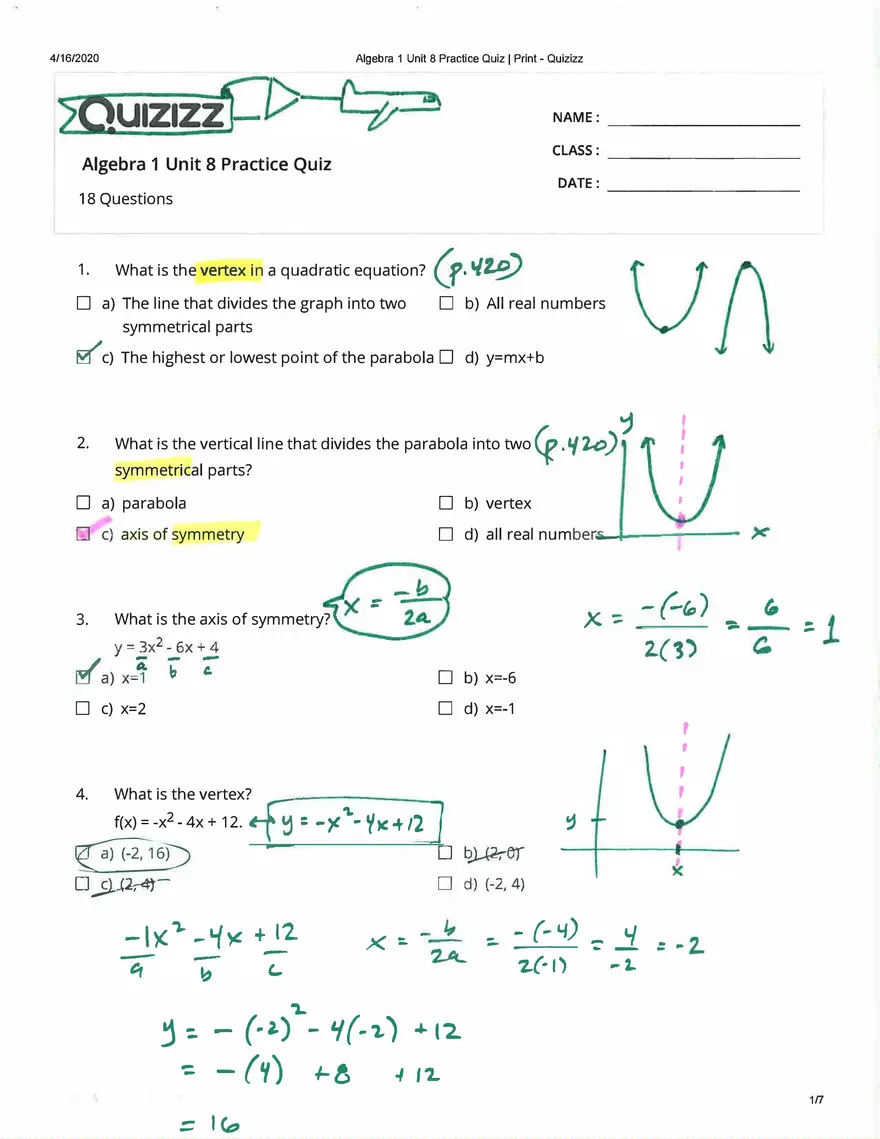 4/16/2020 Algebra 1 Unit 8 Practice Quiz | Print - Quizizz
QUIZIZZ
NAME :
CLASS :
DATE :
Algebra 1 Unit 8 Practice Quiz
18 Questions
1. What is the vertex in a quadratic equation? (p.420)
a) The line that divides the graph into two symmetrical parts
b) All real numbers
c) The highest or lowest point of the parabola
d) y=mx+b
2. What is the vertical line that divides the parabola into two (p.420)
symmetrical parts?
y
x
a) parabola
b) vertex
c) axis of symmetry
d) all real numbers
3. What is the axis of symmetry? x = -b/2a
y = 3x² - 6x + 4
a b c
x = -(-6)/2(3) = 6/6 = 1
a) x=1
b) x=-6
c) x=2
d) x=-1
4. What is the vertex?
f(x) = -x² - 4x + 12. ↔ y = -x² - 4x + 12
y
x
a) (-2, 16)
b) (2, 0)
c) (2, 4)
d) (-2, 4)
-1x² - 4x + 12
a b c
x = -b/2a = -(-4)/2(-1) = 4/-2 = -2
y = -(-2)² - 4(-2) + 12
= -(4) + 8 + 12
= 16
1/7